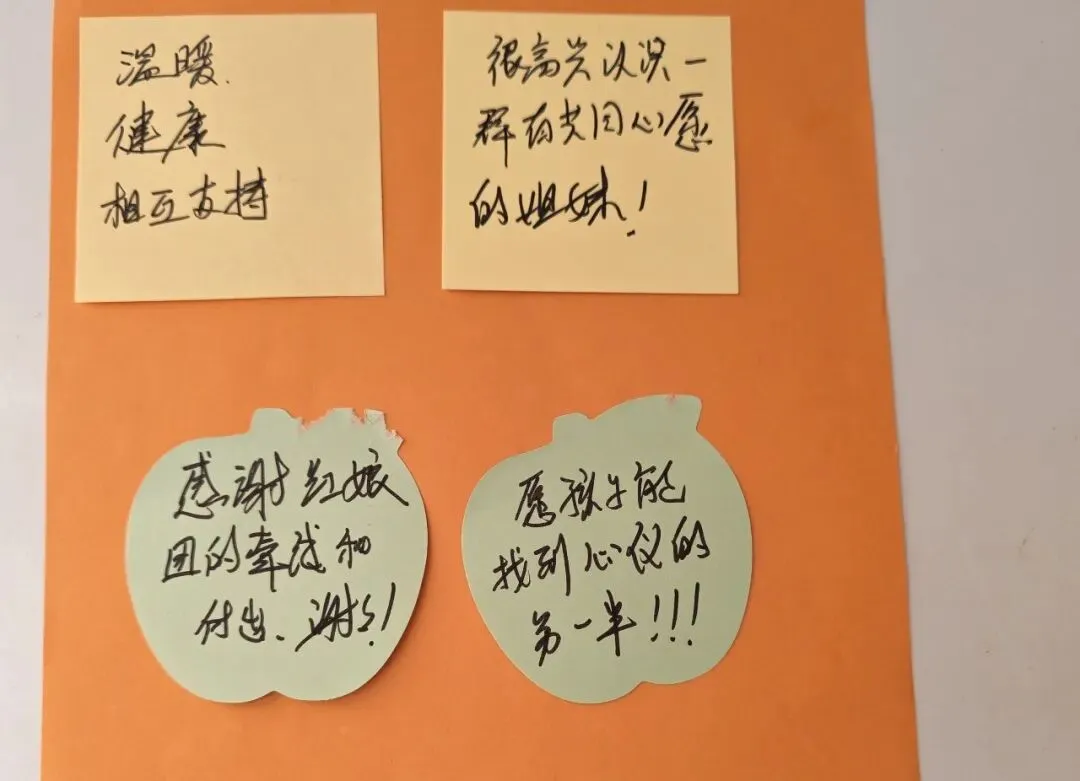 温暖.
健康
相互支持
很高兴认识一
群有共同心愿
的姐妹！
感谢红娘
团的牵线和
付出、谢谢！
愿孩子能
找到心仪的
另一半！！！